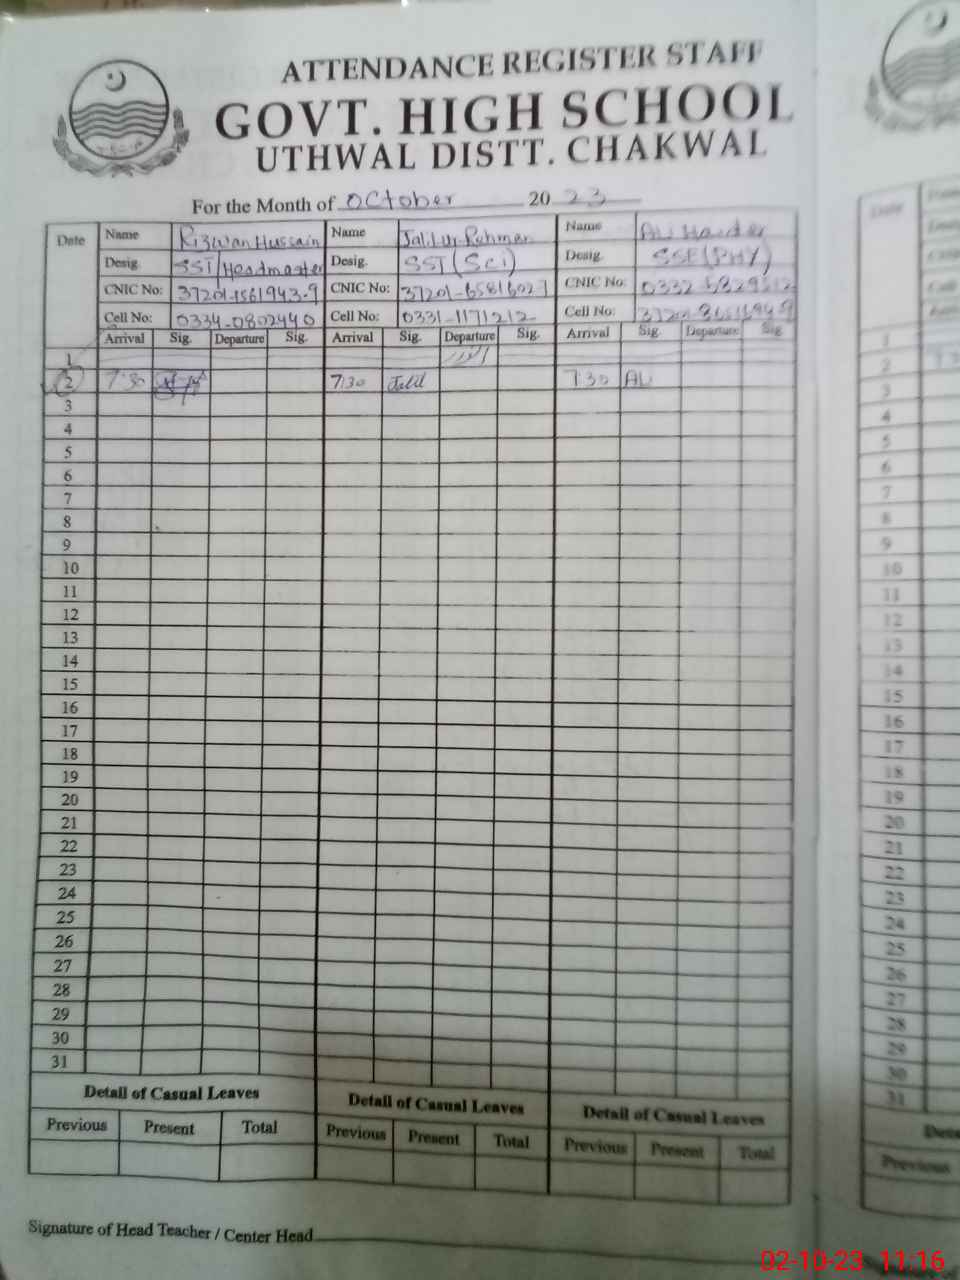 ATTENDANCE REGISTER STAFF
GOVT. HIGH SCHOOL
UTHWAL DISTT. CHAKWAL
For the Month of October 20 23
Date Name Rizwan Hussain Name Jalil ur Rehman Name Ali Haider
Desig. SST/Headmaster Desig. SST (Sci) Desig. SSE (PHY)
CNIC No: 37201-1561943-9 CNIC No: 37201-6581602-1 CNIC No:
Cell No: 0334-0802440 Cell No: 0331-1171212 Cell No:
Arrival Sig. Departure Sig. Arrival Sig. Departure Sig. Arrival Sig. Departure Sig
1 اتوار
2 7:30 7:30 Jalil 7:30 Ali
3
4
5
6
7
8
9
10
11
12
13
14
15
16
17
18
19
20
21
22
23
24
25
26
27
28
29
30
31
Detail of Casual Leaves Detail of Casual Leaves Detail of Casual Leaves
Previous Present Total Previous Present Total Previous Present Total
Signature of Head Teacher / Center Head
Date
1
2
3
4
5
6
7
8
9
10
11
12
13
14
15
16
17
18
19
20
21
22
23
24
25
26
27
28
29
30
31
Previous
02-10-23 11:16